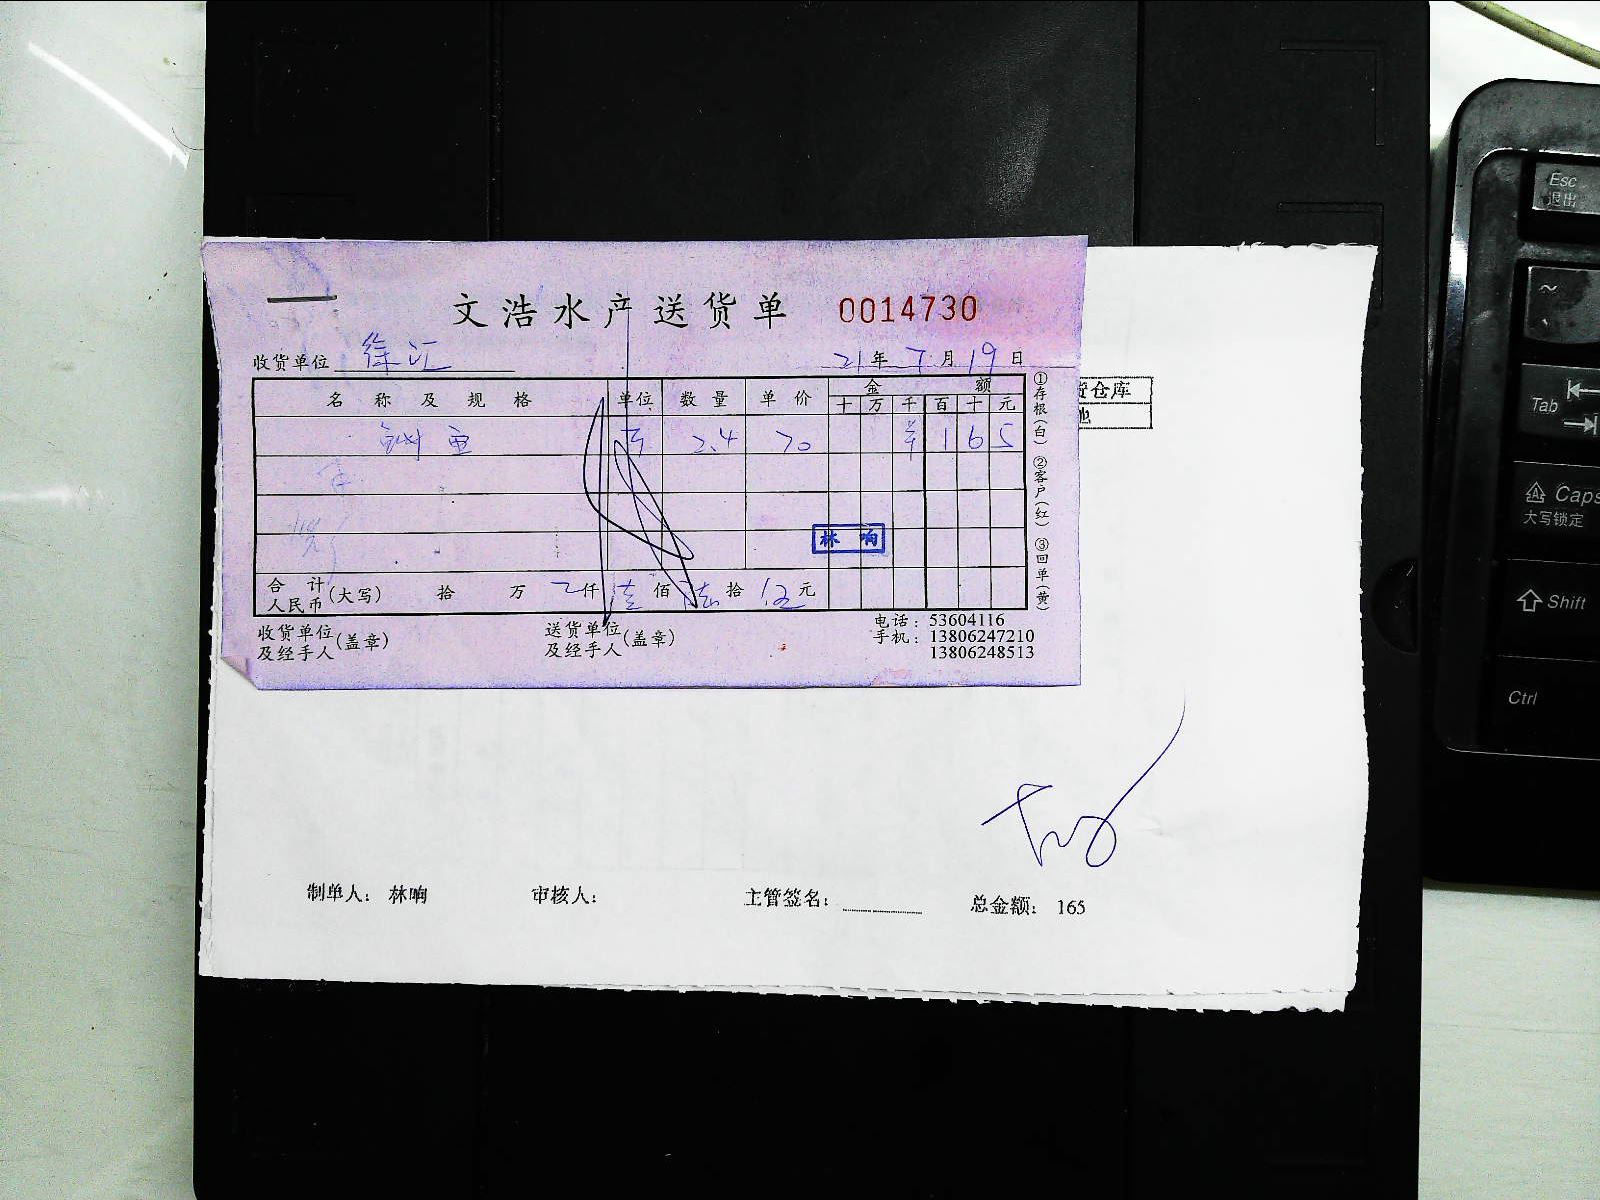 文浩水产送货单 0014730
收货单位 徐汇 21年7月19日
名称及规格 单位 数量 单价 金额
十 万 千 百 十 元
鱼 2.4 70 1 6 5
林响
合计人民币(大写) 拾 万 仟 壹佰 陆拾 伍元
收货单位及经手人(盖章) 送货单位及经手人(盖章)
电话：53604116
手机：13806247210
13806248513
①存根(白) ②客户(红) ③回单(黄)
货仓库
制单人： 林响 审核人： 主管签名： 总金额： 165
Esc
退出
~
Tab
Caps
大写锁定
Shift
Ctrl